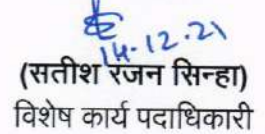 14.12.21
(सतीश रंजन सिन्हा)
विशेष कार्य पदाधिकारी